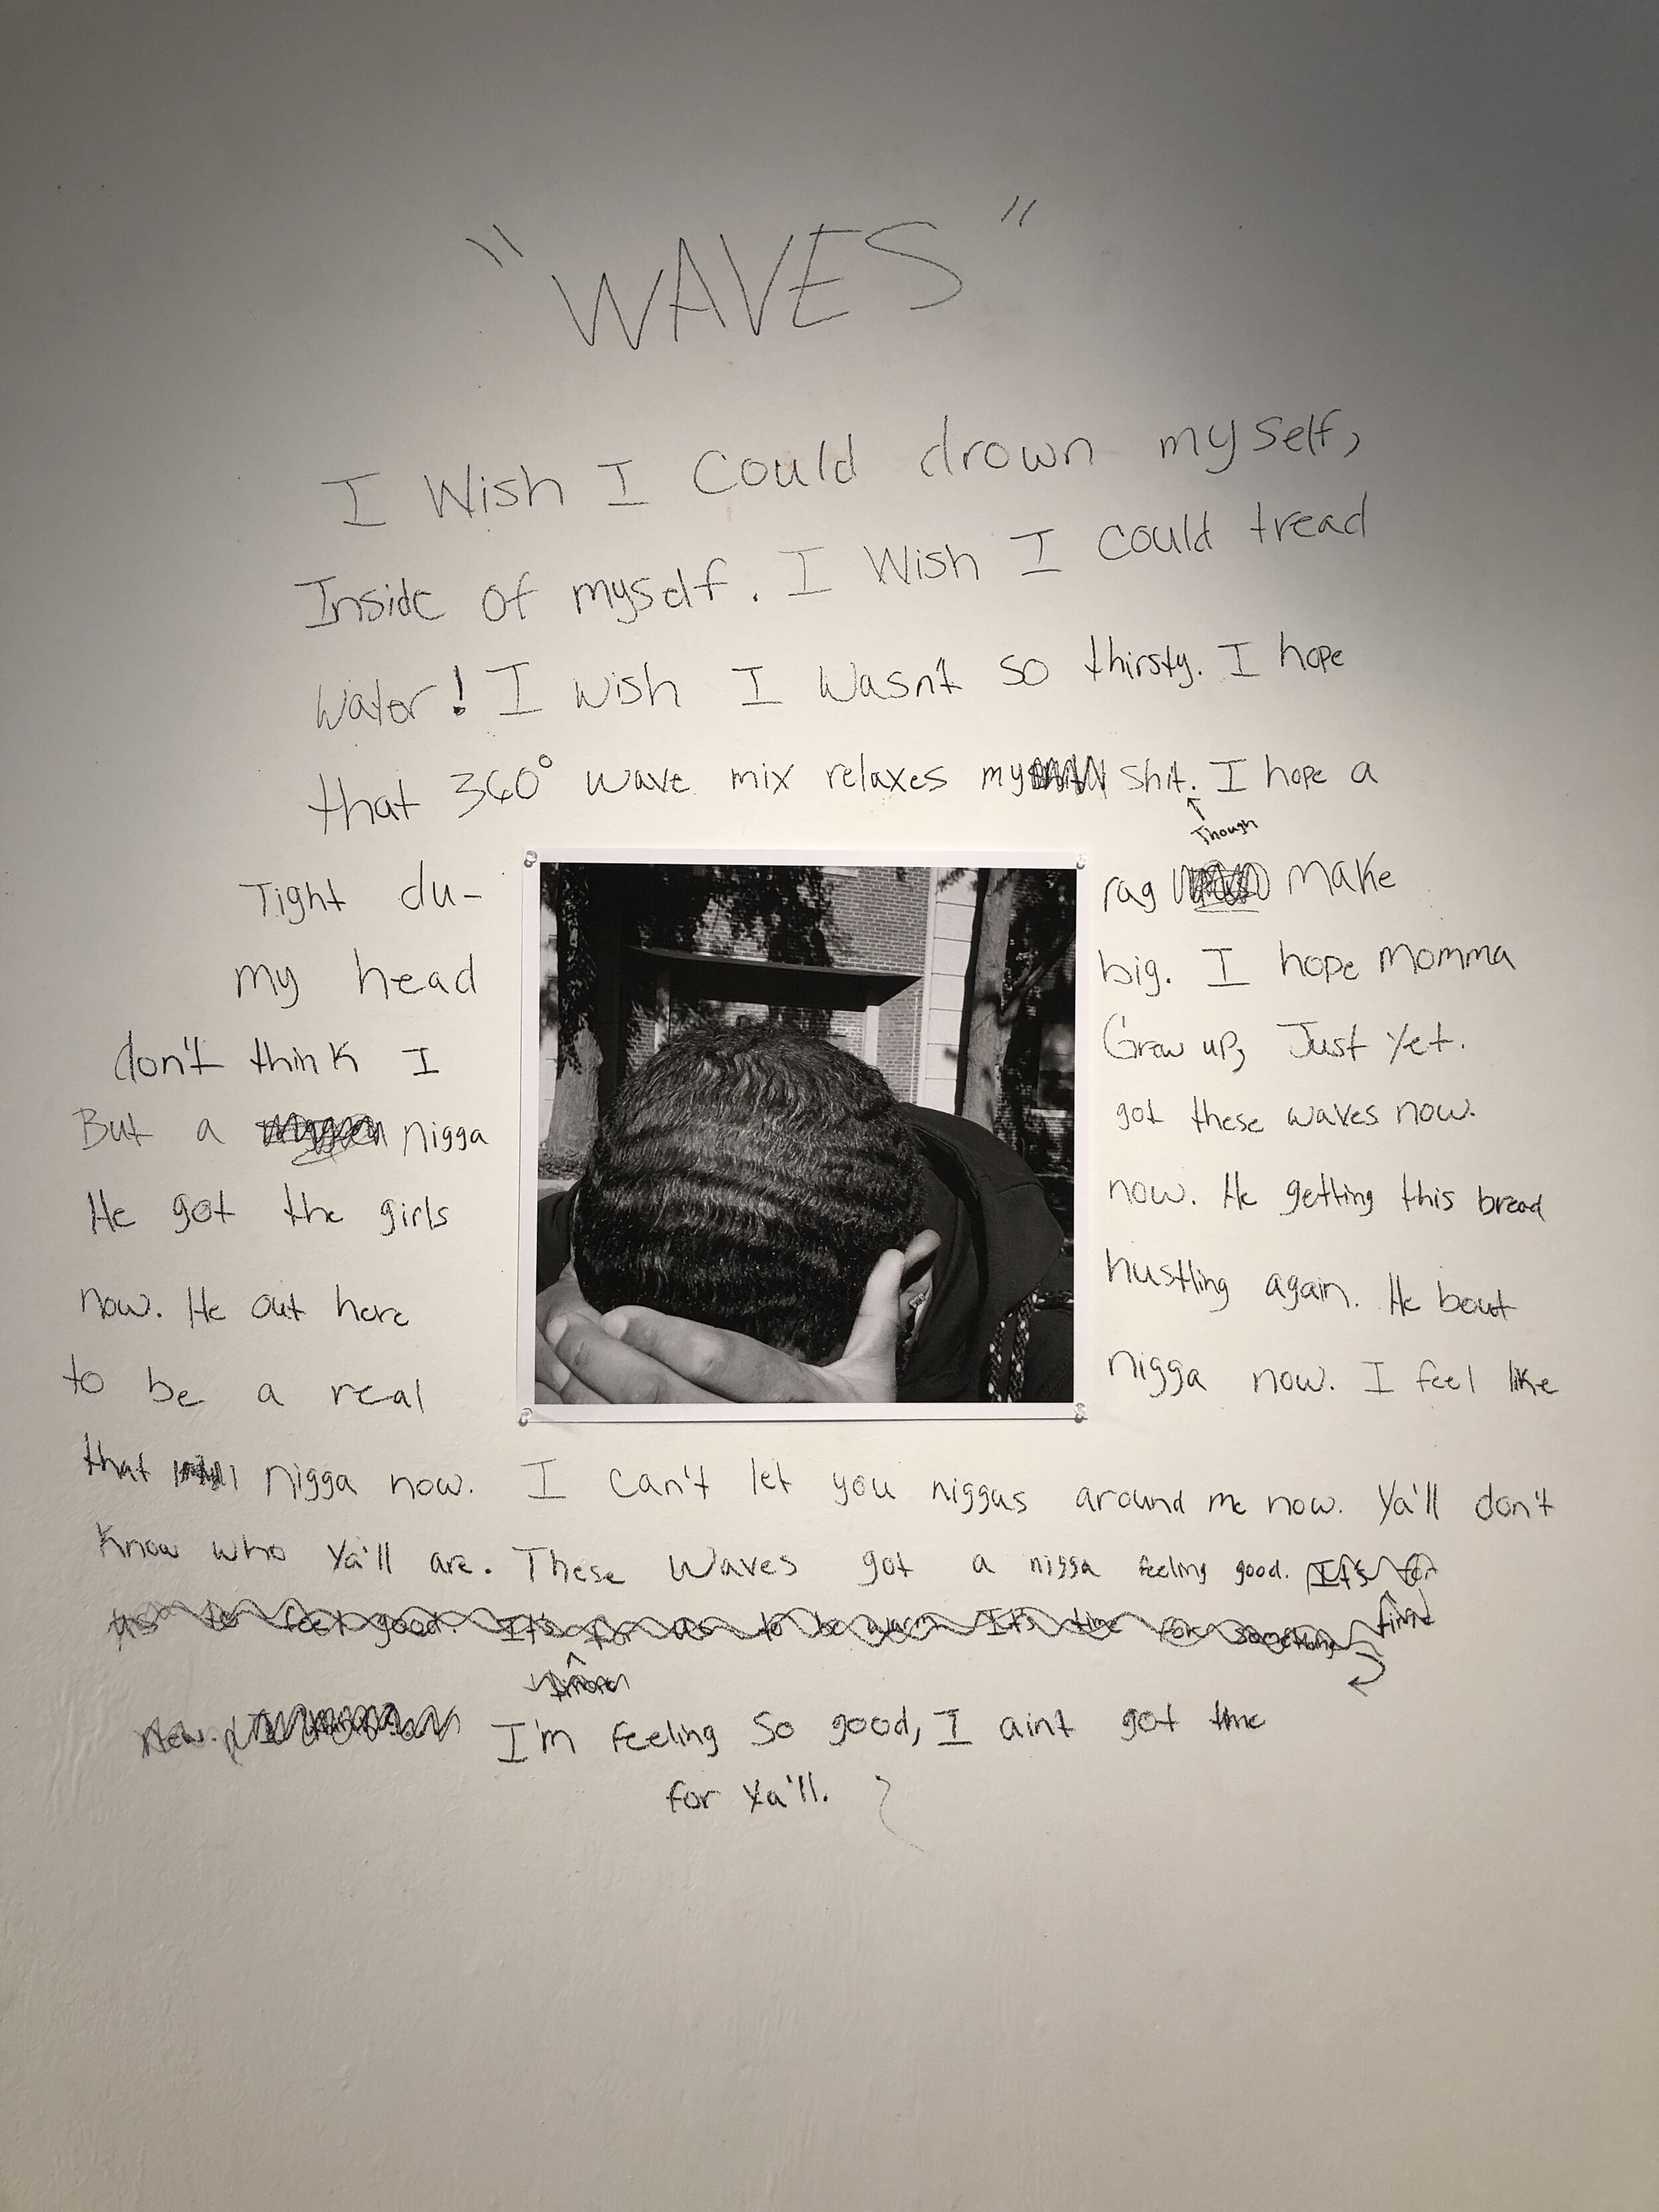 "WAVES"
I Wish I Could drown myself,
Inside of myself. I Wish I could tread
Water! I wish I Wasn't so thirsty. I hope
that 360° wave mix relaxes my shit. I hope a
Though
Tight du- rag make
my head big. I hope momma
don't think I Grow up, Just Yet.
But a nigga got these waves now.
He got the girls now. He getting this bread
now. He out here hustling again. He bout
to be a real nigga now. I feel like
that nigga now. I can't let you niggas around me now. Ya'll don't
Know who Ya'll are. These Waves got a nigga feeling good. It's for
us to feel good. It's for us to be warm It's time for something
New. I'm feeling So good, I aint got time
for Ya'll.